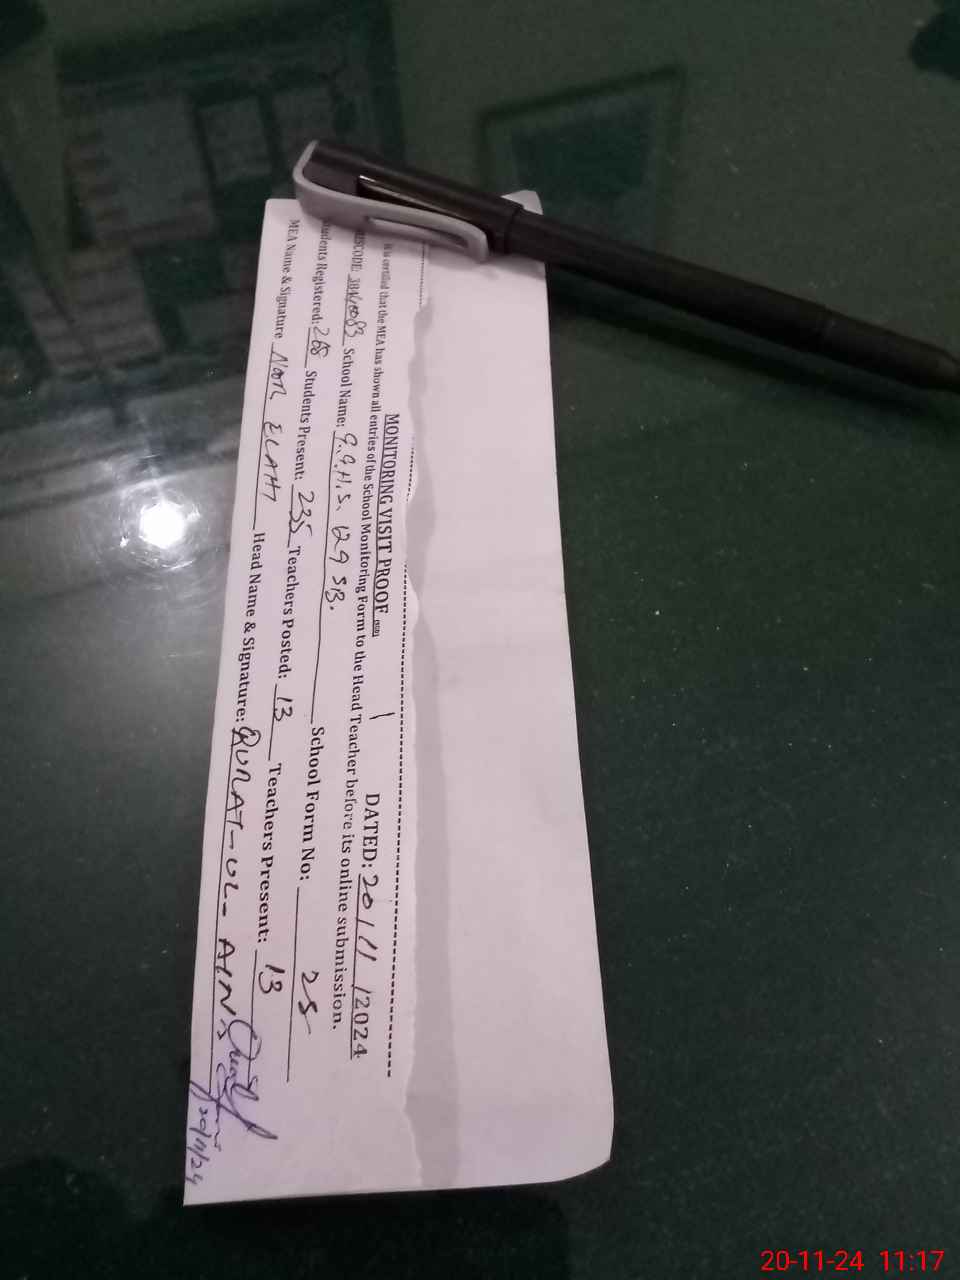 MONITORING VISIT PROOF (SED) DATED: 20/11/2024
It is certified that the MEA has shown all entries of the School Monitoring Form to the Head Teacher before its online submission.
School Name: G.G.H.S. 129 SB. School Form No: 25
Students Registered: 268 Students Present: 235 Teachers Posted: 13 Teachers Present: 13
MEA Name & Signature NOOR ELAHI Head Name & Signature: QURAT-UL-AIN
20/11/24
20-11-24 11:17